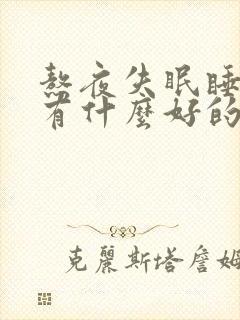 熬夜失眠睡
有什麼好的
克麗斯塔詹姆